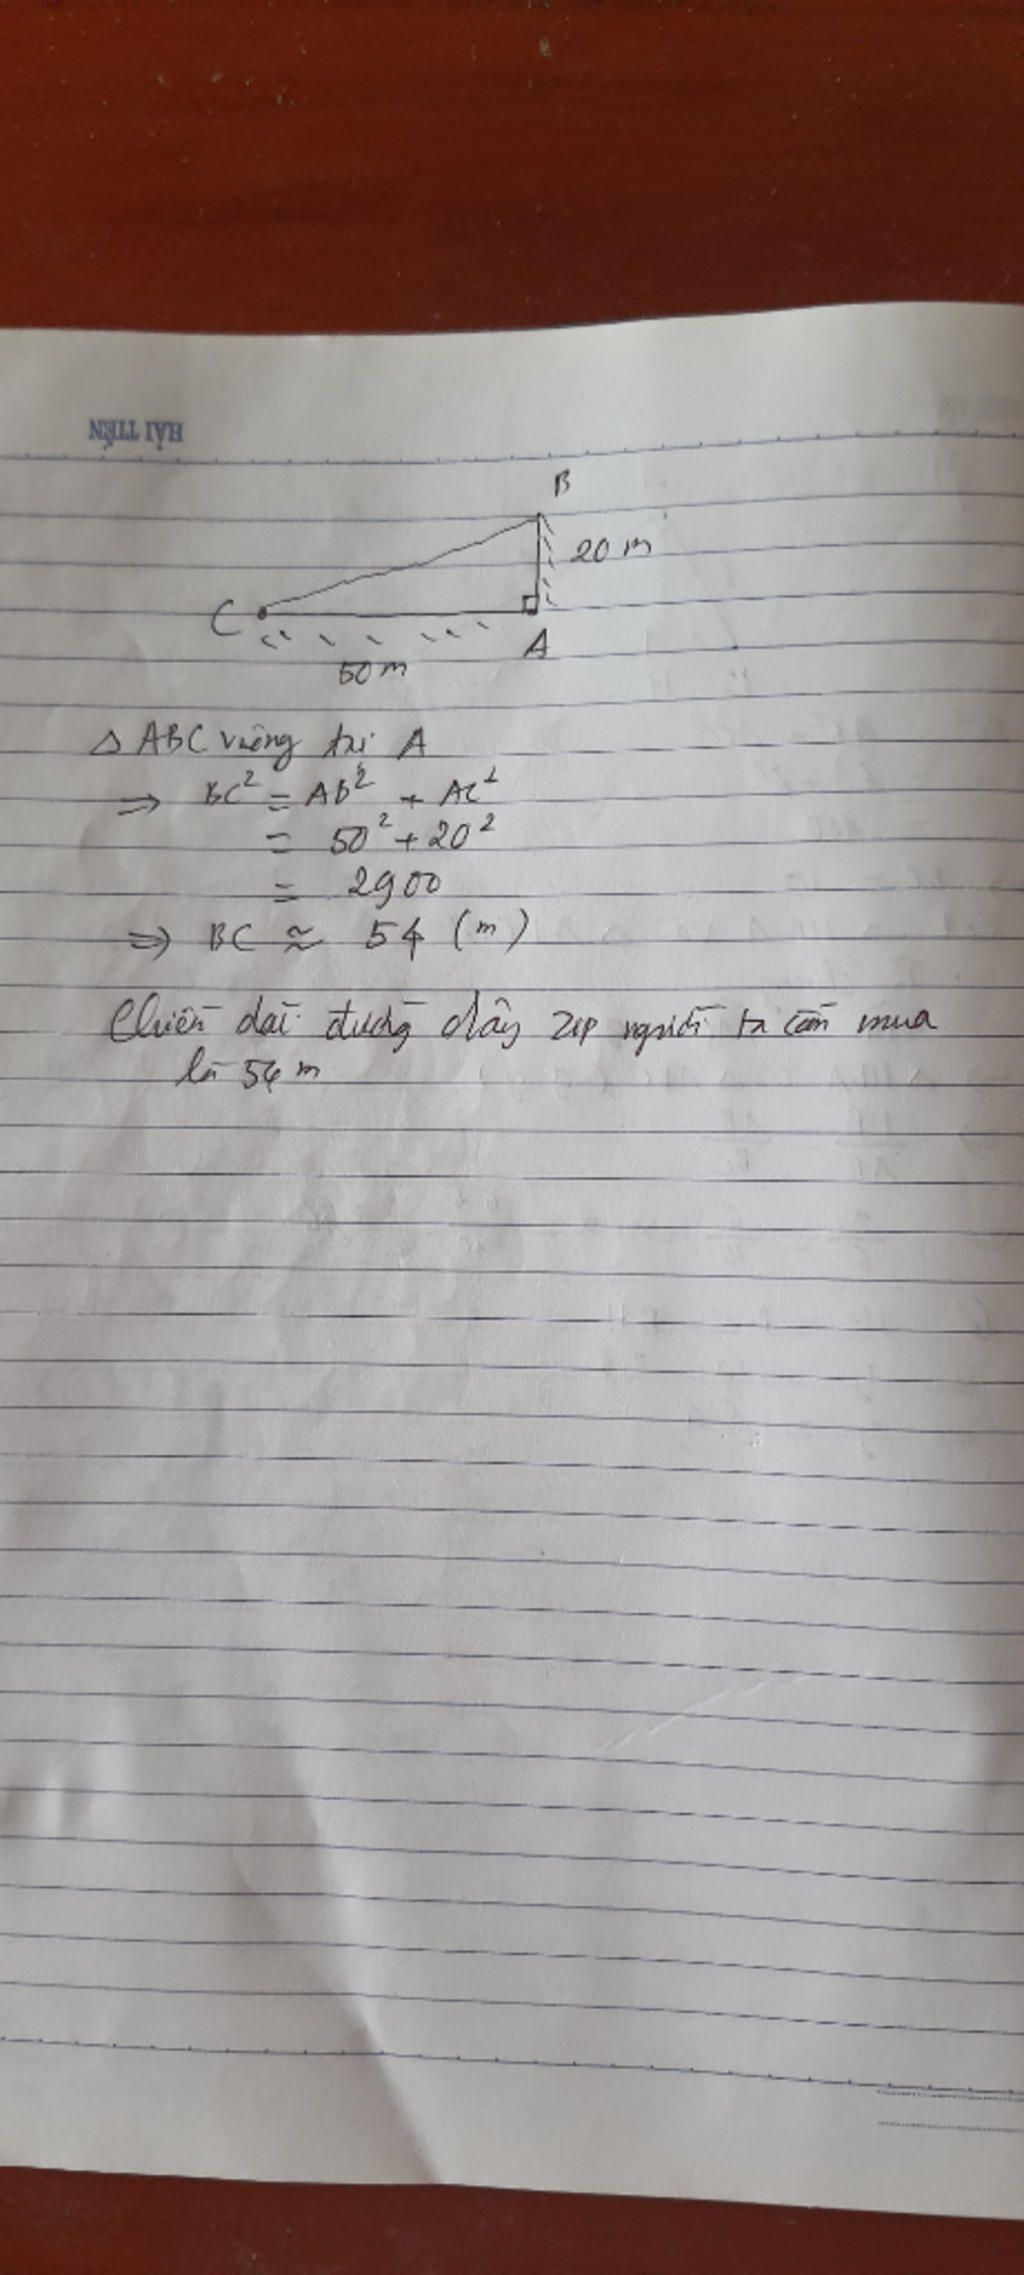 HẢI TIẾN
B
20 m
C
A
50 m
Δ ABC vuông tại A
⇒ BC² = AB² + AC²
= 50² + 20²
= 2900
⇒ BC ≈ 54 (m)
Chiều dài đường dây zip người ta cần mua
là 54 m